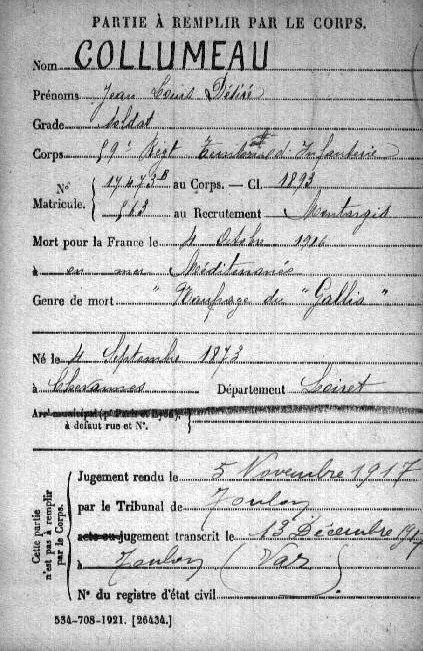 PARTIE À REMPLIR PAR LE CORPS.
Nom COLLUMEAU
Prénoms Jean Louis Désiré
Grade Soldat
Corps 59e Régt Territorial d'Infanterie
No Matricule. 17.473 B au Corps. — Cl. 1893
563 au Recrutement Montargis
Mort pour la France le 4 Octobre 1916
à en mer Méditerranée
Genre de mort "Naufrage du "Gallia"
Né le 4 Septembre 1873
à Chevannes Département Loiret
Arrt municipal (pr Paris et Lyon),
à défaut rue et N°.
Cette partie n'est pas à remplir par le Corps.
Jugement rendu le 5 Novembre 1917
par le Tribunal de Toulon
acte ou jugement transcrit le 13 Décembre 1917
à Toulon (Var)
N° du registre d'état civil
534-708-1921. [26434.]